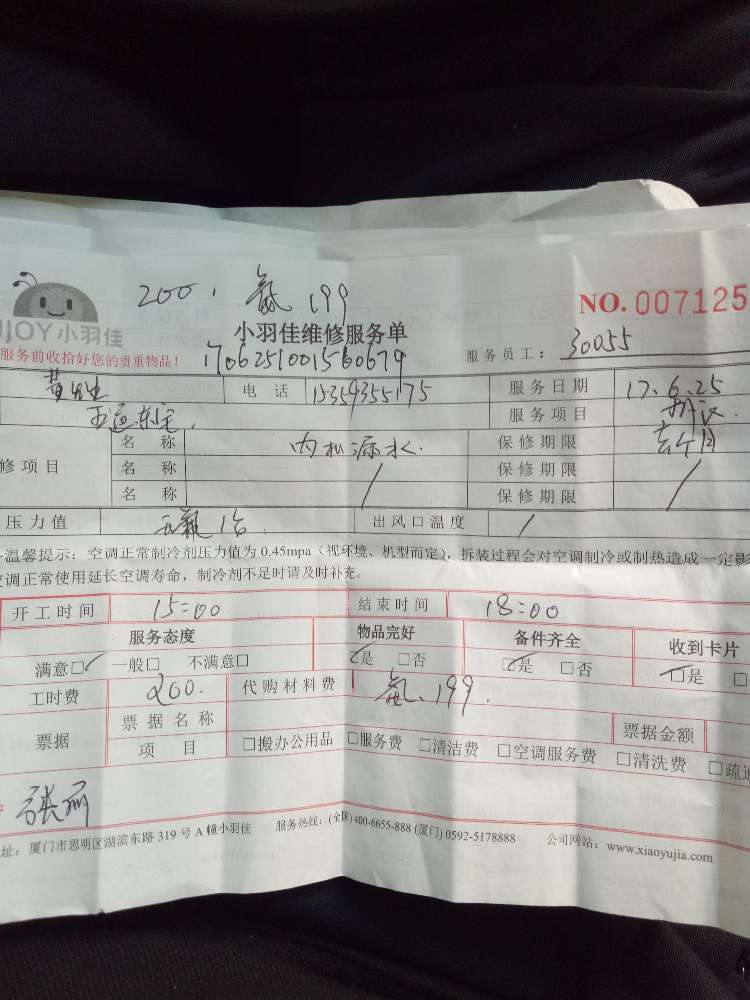 200. 氟 199
NO. 007125
JOY小羽佳
小羽佳维修服务单
服务前收拾好您的贵重物品!
1706251001560679
服务员工: 30055
黄先生 电话 15359355175 服务日期 17.6.25
服务项目
名称 内机漏水. 保修期限 六个月
修项目 名称 / 保修期限 /
名称 保修期限
压力值 出风口温度 /
温馨提示: 空调正常制冷剂压力值为 0.45mpa (视环境、机型而定), 拆装过程会对空调制冷或制热造成一定影
调正常使用延长空调寿命, 制冷剂不足时请及时补充。
开工时间 15:00 结束时间 18:00
服务态度 物品完好 备件齐全 收到卡片
满意□✓ 一般□ 不满意□ ☑是 □否 ☑是 □否 ☑是 □
工时费 200. 代购材料费 氟、199.
票据 票据名称 票据金额
项目 □搬办公用品 □服务费 □清洁费 □空调服务费 □清洗费 □疏通
张丽
址: 厦门市思明区湖滨东路 319 号 A 幢小羽佳 服务热线: (全国) 400-6655-888 (厦门) 0592-5178888 公司网站: www.xiaoyujia.com